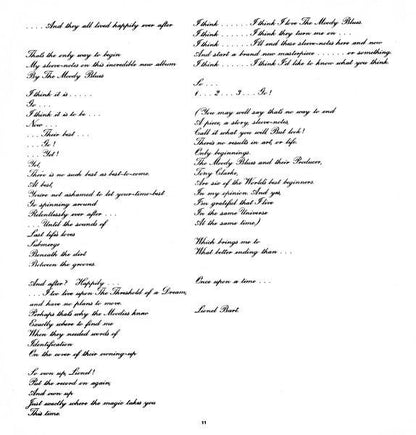 . . . . And they all lived happily ever after
Thats the only way to begin
My sleeve-notes on this incredible new album
By The Moody Blues
I think it is . . . . .
Go . . .
I think it is to be . . .
Now . . .
. . . Their best . . .
. . . Go !
. . . Yet !
Yet,
There is no such best as best-to-come.
At best,
You're not ashamed to let your-time-best
Go spinning around
Relentlessly ever after . . .
. . . Until the sounds of
Last life's loves
Submerge
Beneath the dirt
Between the grooves.
And after? Happily . . .
. . . I too live upon The Threshold of a Dream,
and have no plans to move.
Perhaps thats why the Moodies knew
Exactly where to find me
When they needed words of
Identification
On the cover of their owning-up
So own up, Lionel !
Put the record on again,
And own up
Just exactly where the magic takes you
This time.
I think . . . . . . . I think I love The Moody Blues.
I think . . . . . . . I think they turn me on . . .
I think . . . . . . . I'll end these sleeve-notes here and now
And start a brand new masterpiece . . . . . . . or something.
I think . . . . . . . I think I'd like to know what you think.
So . . .
1 . . . 2 . . . 3 . . . Go !
(You may well say thats no way to end
A piece, a story, sleeve-notes,
Call it what you will But look !
Theres no results in art, or life.
Only beginnings.
The Moody Blues and their Producer,
Tony Clarke,
Are six of the Worlds best beginners
In my opinion And yes,
I'm grateful that I live
In the same Universe
At the same time.)
Which brings me to
What better ending than . . .
Once upon a time . . .
Lionel Bart.
11